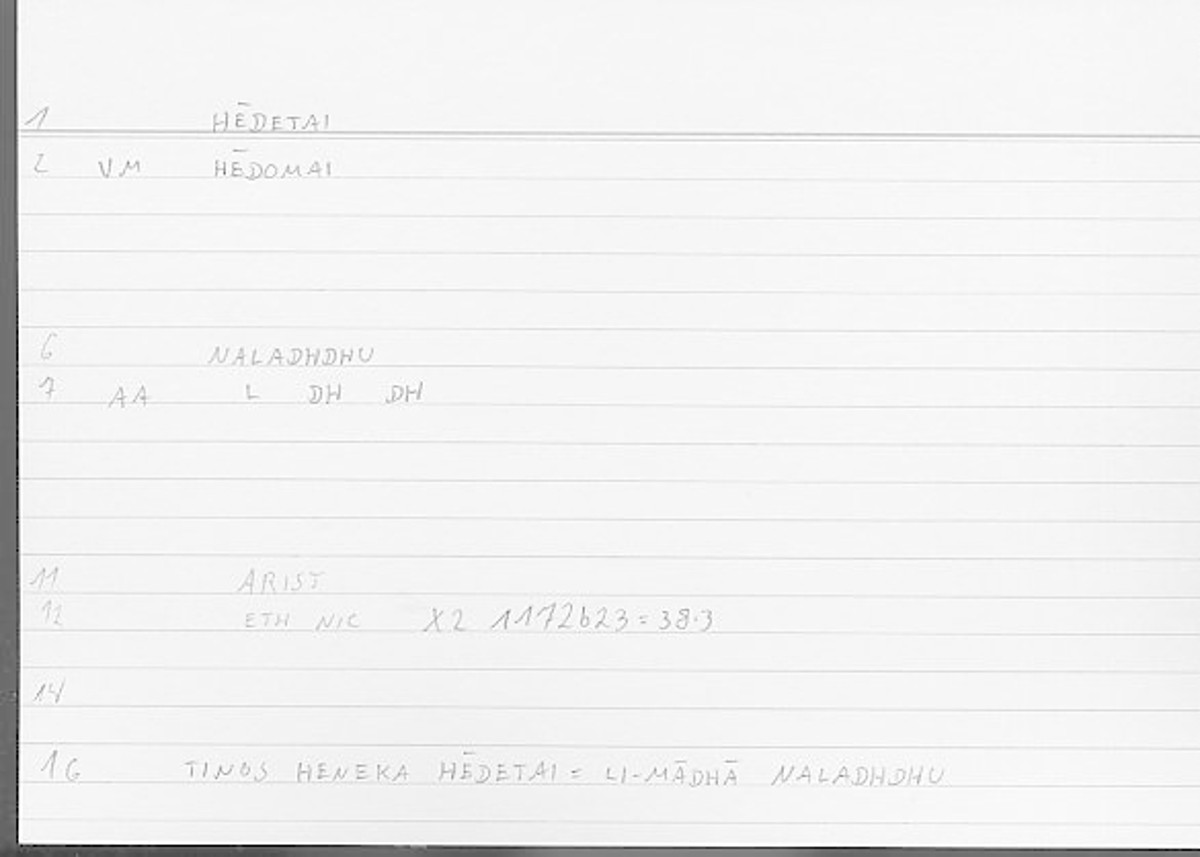 1 HĒDETAI
2 VM HĒDOMAI
6 NALADHDHU
7 AA L DH DH
11 ARIST
12 ETH NIC X2 1172b23=38.3
14
16 TINOS HENEKA HĒDETAI = LI-MĀDHĀ NALADHDHU